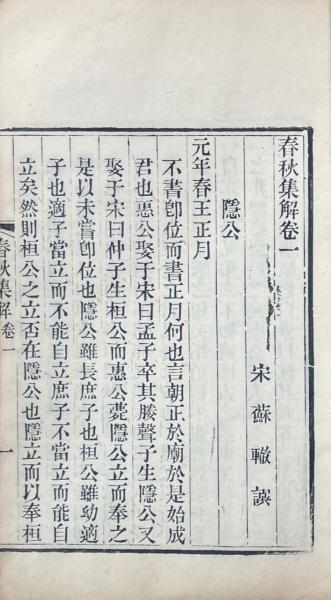 春秋集解卷一
宋蘇轍譔
隱公
元年春王正月
不書卽位而書正月何也言朝正於廟於是始成
君也惠公娶于宋曰孟子卒其媵聲子生隱公又
娶于宋曰仲子生桓公而惠公薨隱公立而奉之
是以未嘗卽位也隱公雖長庶子也桓公雖幼適
子也適子當立而不能自立庶子不當立而能自
立矣然則桓公之立否在隱公也隱立而以奉桓
春秋集解 卷一 一